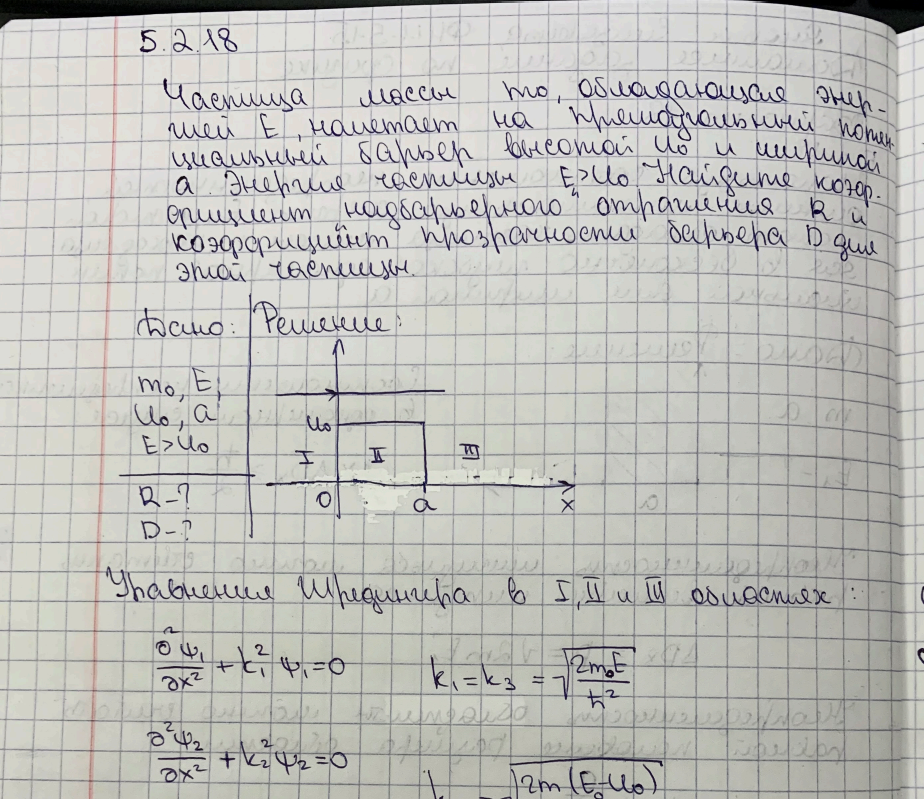 5.2.18
Частица массы m₀, обладающая энер-
гией E, налетает на прямоугольный потен-
циальный барьер высотой U₀ и шириной
a. Энергия частицы E>U₀. Найдите коэф-
фициент "надбарьерного" отражения R и
коэффициент прозрачности барьера D для
этой частицы.
Дано: Решение:
m₀, E,
U₀, a
E>U₀
R-?
D-?
U₀
I II III
0 a x
Уравнения Шредингера в I, II и III областях:
∂²ψ₁/∂x² + k₁²ψ₁=0 k₁=k₃=√(2m₀E/ħ²)
∂²ψ₂/∂x² + k₂²ψ₂=0 2m(E-U₀)